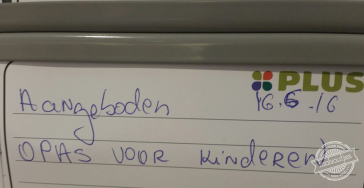 PLUS
Aangeboden 16.6.-16
OPAS VOOR kinderen